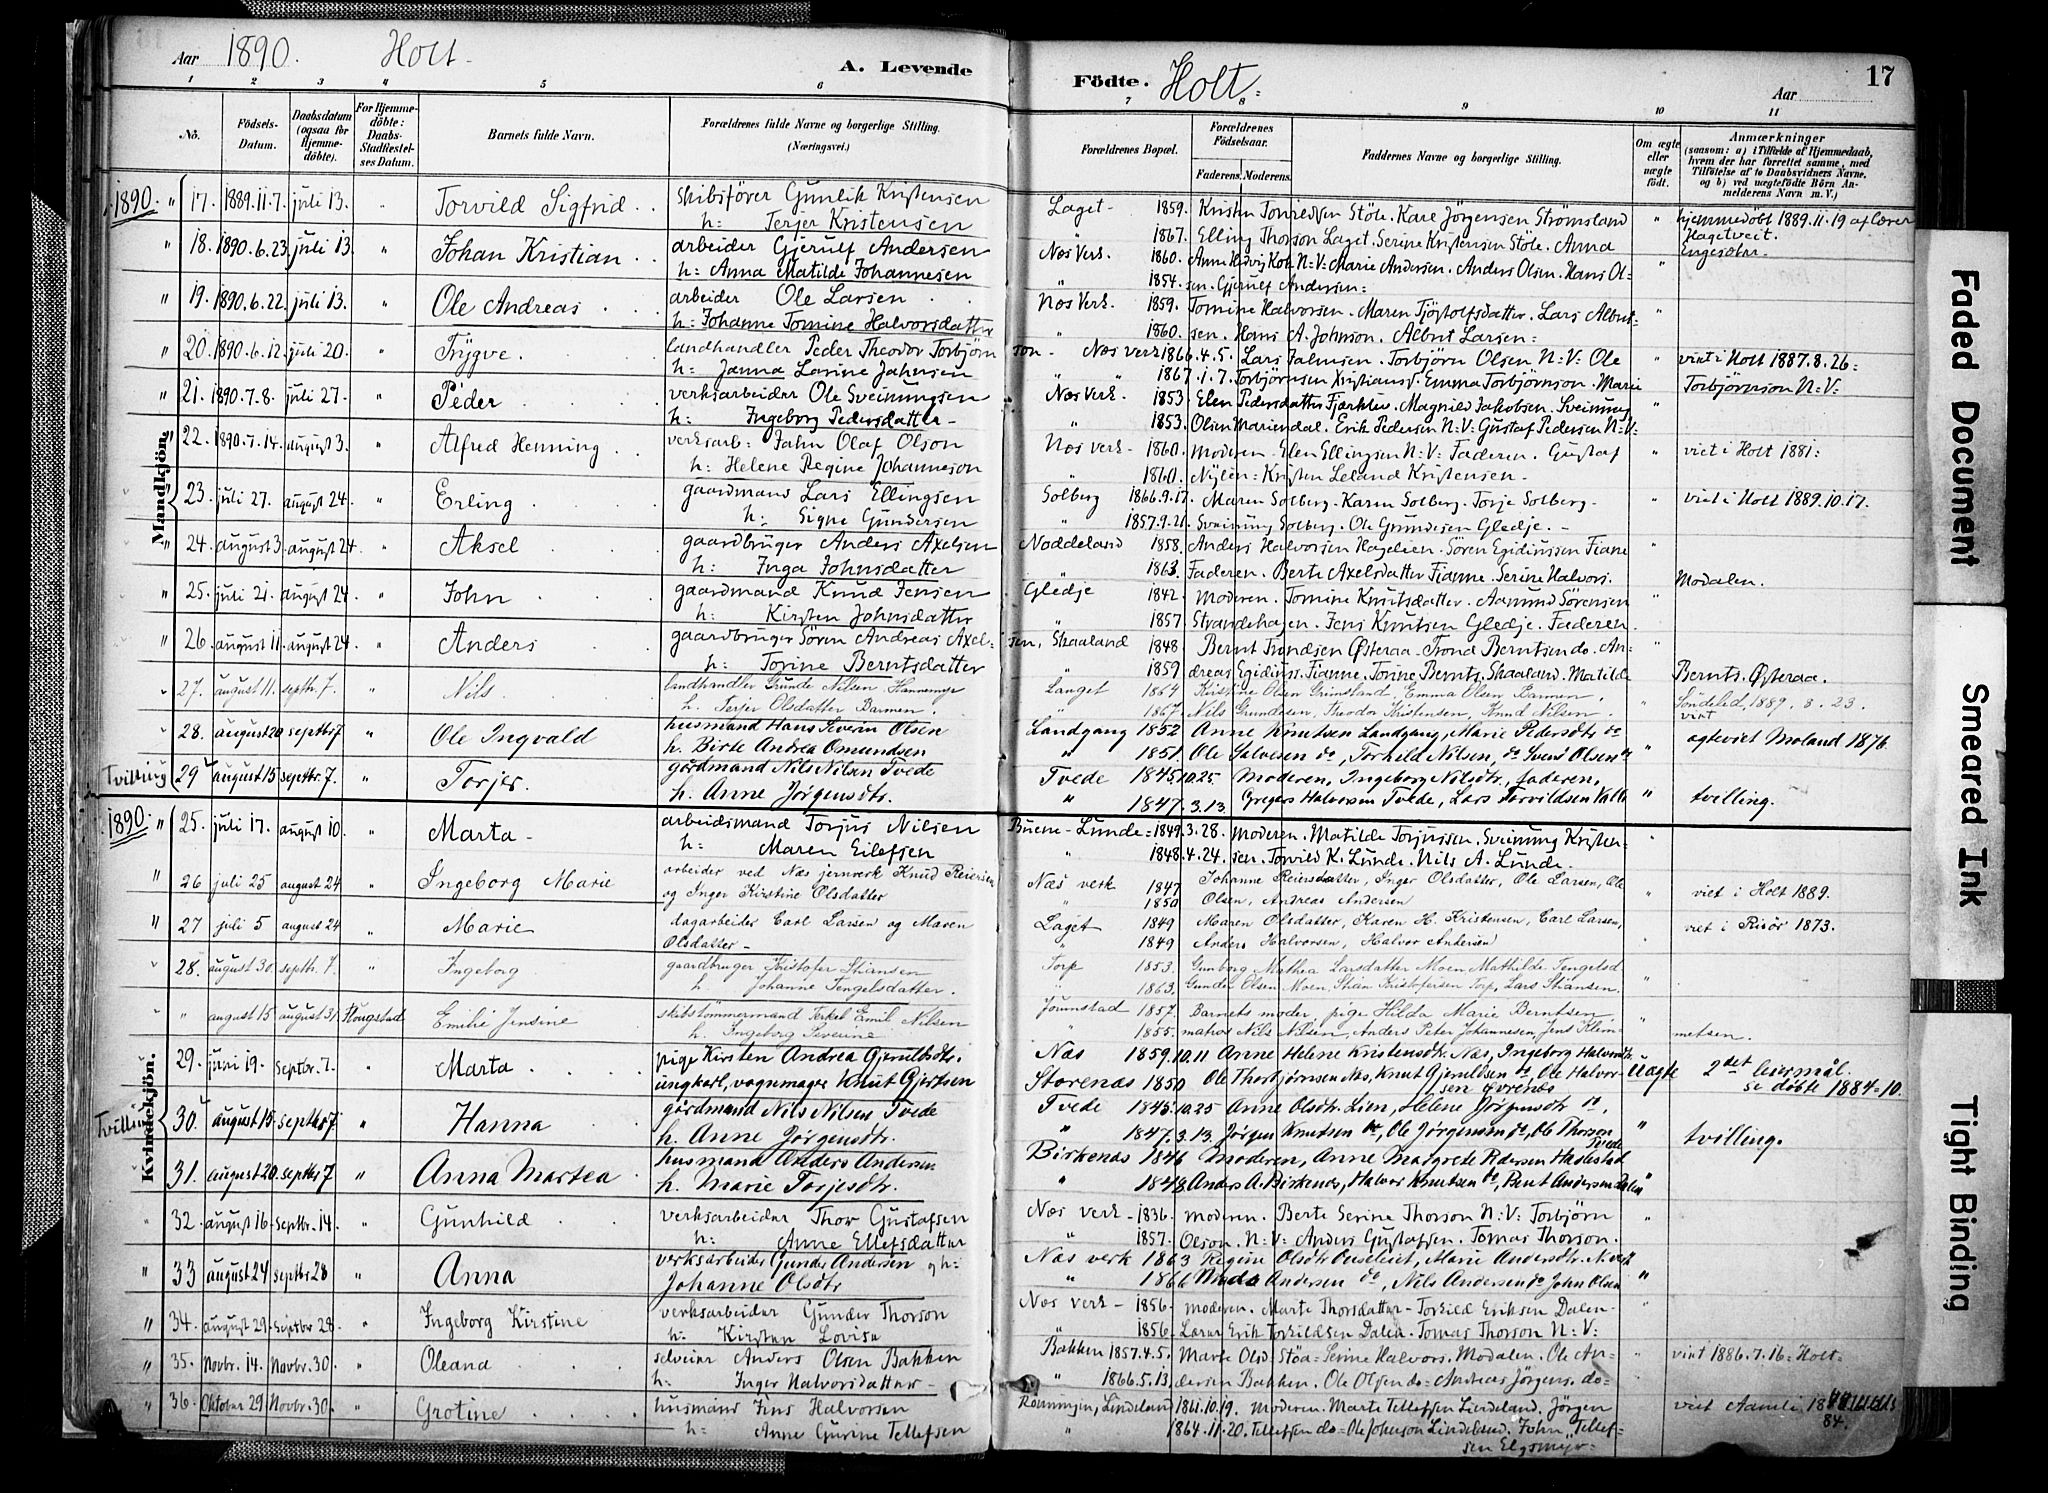 Aar 1890. Holt. A. Levende
Födte. Holt. Aar 17
1 2 3 4 5 6 7 8 9 10 11
Nō. Födsels-Datum. Daabsdatum (ogsaa for Hjemmedöbte). For Hjemmedöbte: Daabs-Stadfæstelses Datum. Barnets fulde Navn. Forældrenes fulde Navne og borgerlige Stilling. (Næringsvei.) Forældrenes Bopæl. Forældrenes Födselsaar. Faderens. Moderens. Faddernes Navne og borgerlige Stilling. Om ægte eller uægte födt. Anmærkninger (saasom: a) i Tilfælde af Hjemmedaab, hvem der har forrettet samme, med Tilföielse af to Daabsvidners Navne, og b) ved uægtefödte Börn Anmelderens Navn m. V.)
Mandkjön.
1890. " 17. 1889.11.7. juli 13. " Torvild Sigfrid. Skibsförer Gunlik Kristensen Laget 1859. Kristen Tonredsen Støle. Kare Jørgensen Strømsland " hjemmedøbt 1889.11.19 af lærer
h: Terjer Kristensen " 1867. Elling Thorson Laget. Serine Kristensen Støle. Anna Hagetveit.
" 18. 1890.6.23. juli 13. " Johan Kristian. arbeider Gjerulf Andersen Næs Verk. 1860. Anne Hedvig Kok N:V: Marie Andersen. Anders Olsen. Hans Ol- "
h: Anna Matilde Johannesen " 1854. sen. Gjerulf Andersen:
" 19. 1890.6.22. juli 13. " Ole Andreas. arbeider Ole Larsen Næs Verk. 1859. Tomine Halvorsen. Maren Tjøstolfsdatter. Lars Albret- "
h: Johanne Tomine Halvorsdatter " 1860. sen. Hans A. Johnson. Albert Larsen:
" 20. 1890.6.12. juli 20. " Trygve. landhandler Peder Theodor Torbjørn son. Næs verk 1866.4.5. Lars Jahnsen. Torbjørn Olsen N:V: Ole " viet i Holt 1887.8.26:
h: Janna Larine Jahnsen " 1867.1.7. Torbjørnsen Kristiansf. Emma Torbjørnson. Marie Torbjørnson N:V:
" 21. 1890.7.8. juli 27. " Peder verksarbeider Ole Sveinungsen Næs Verk. 1853. Elen Pedersdatter Fjærkler. Magnild Jakobsen. Sveinung "
h: Ingeborg Pedersdatter " 1853. Olsen Mariendal. Erik Pedersen N:V: Gustaf Pedersen N:V:
" 22. 1890.7.14. august 3. " Alfred Henning. verksarb: Jahn Olaf Olson Næs verk. 1860. moderen. Elen Ellingsen N:V: Faderen. Gustaf " viet i Holt 1881:
h: Helene Regine Johanneson " 1860. Nylen: Kristen Leland Kristensen.
23. juli 27. august 24. " Erling gaardmand Lars Ellingsen Solberg 1866.9.17. Maren Solberg. Karen Solberg. Torje Solberg. " viet i Holt 1889.10.17.
h: Signe Gundersen " 1857.9.21. Sveinung Solberg. Ole Grundesen Gledje.
" 24. august 3. august 24. " Aksel gaardbruger Anders Axelsen Noddeland 1858. Anders Halvorsen Hagelien. Sören Egidiussen Fiane "
h: Inga Johnsdatter " 1863. Faderen. Berte Axelsdatter Fianne. Serine Halvors. Modalen.
" 25. juli 21. august 24. " John gaardmand Knud Jensen Gledje 1842. Moderen. Tomine Knutsdatter. Aamund Sörensen
h: Kirsten Johnsdatter " 1857. Strandehagen. Jens Knutsen Gledje. Faderen.
" 26. august 11. august 24. " Anders gaardbruger Sören Andreas Axel- sen, Skaaland 1848. Bernt Trondsen Østeraa. Trond Berntsen do. An- "
h: Torine Berntsdatter " 1859. dreas Egidiuss. Fianne. Torine Bernts. Skaaland. Matilde Bernts. Østeraa.
27. august 11. septbr. 7. " Nils. landhandler Grunde Nilsen Hannemyr Langet 1864. Kristine Olsen Grimsland, Emma Olsen Barmen, " Söndeled 1889. 8. 23.
h. Terjer Olsdatter Barmen. " 1867. Nils Grundesen, Theodor Kristensen, Knud Nilsen. viet
28. august 20. septbr 7 " Ole Ingvald husmand Hans Severin Olsen Landgang 1852 Anne Knutsen Landgang, Marie Pedersdtr do ægteviet Moland 1876.
h. Birte Andrea Omundsen " 1851. Ole Salvesen do, Torkild Nilsen, do Svend Olsen do "
Tvilling 29. august 15. septbr. 7. " Torjer. gårdmand Nils Nilsen Tvede Tvede 1845.10.25. Moderen, Ingeborg Nilsdtr, faderen,
h. Anne Jørgensdtr. " 1847.3.13. Gregers Halvorsen Tvede, Lars Torvildsen Valle " tvilling.
Kvindekjön.
1890. " 25. juli 17. august 10. " Marta arbeidsmand Torjus Nilsen Buene-Lunde 1849.3.28. Moderen. Matilde Torjussen. Sveinung Kristen- "
h: Maren Eilefsen " 1848.4.24. sen. Torvild K. Lunde. Nils A. Lunde.
" 26 juli 25 august 24 " Ingeborg Marie arbeider ved Næs jernværk Knud Reiersen Næs verk 1847 Johanne Reiersdatter, Inger Olsdatter, Ole Larsen, Ole " viet i Holt 1889.
og Inger Kristine Olsdatter " 1850 Olsen, Andreas Andersen
" 27 juli 5 august 24 " Marie dagarbeider Carl Larsen og Maren Laget 1849 Maren Olsdatter, Karen H. Kristensen, Carl Larsen, viet i Risör 1873.
Olsdatter " 1849 Anders Halvorsen, Halvor Andersen "
28. august 30. septbr. 7. " Ingeborg gaardbruger Kristofer Stiansen Torp 1853. Gunborg Mathea Larsdatter Moen, Mathilde Tengelsd
h. Johanne Tengelsdatter. " 1863. Gunder Olsen Moen, Stian Kristofersen Torp, Lars Stiansen.
" august 15 august 31. Flougstad Emilie Jensine skibstömmermand Terkel Emil Nilsen 1857. Barnets moder, pige Hilda Marie Berntsen,
h. Ingeborg Severine " 1855. matros Nils Nilsen, Anders Peter Johannesen, Jens Klem- metsen.
29. juni 19. septbr. 7. " Marta pige Kirsten Andrea Gjerulfsdtr. Næs 1859.10.11 Anne Helene Kristensdtr. Næs, Ingeborg Halvorsdtr. uægte 2det leiermål.
ungkarl, vognmager Knut Gjertsen Storenæs 1850 Ole Thorbjørnsen Næs, Knut Gjerulfsen do Ole Halvor- sen Øvrenæs se døbte 1884-10.
Tvilling 30. august 15. septbr 7. " Hanna gårdmand Nils Nilsen Tvede Tvede 1845.10.25 Anne Olsdtr. Lien, Helene Jørgensdtr do,
h. Anne Jørgensdtr. " 1847.3.13. Jørgen Knutsen do, Ole Jørgenson do, Ole Thorson Tvede " tvilling.
31. august 20. septbr 7 " Anna Martea husmand Anders Andersen Birkenæs 1846 Moderen, Anne Margrete Pedersen Haslestad
h. Marie Torjesdtr. " 1848 Anders A. Birkenæs, Halvor Knutsen do, Bent Andersen Dalen "
32. august 16. septbr. 14. " Gunhild verksarbeider Thor Gustafsen Næs verk 1836. moderen. Berte Serine Thorson N:V: Torbjørn "
h: Anne Ellefsdatter " 1857. Olson. N:V: Anders Gustafsen. Tomas Thorson.
" 33 august 24 septbr 28 " Anna verksarbeider Gunder Andersen og h: Næs verk 1863 Regine Olsdtr Ouseleiet, Marie Andersdtr. N. verk
Johanne Olsdtr " 1866 Mads Andersen do, Nils Andersen do John Olsen "
" 34. august 29. Septbr 28 " Ingeborg Kirstine verksarbeider Gunder Thorson Næs verk 1856. moderen. Marte Thorsdatter. Torkild Eriksen Dalen "
h: Kirsten Lovise " 1856. Lærer Erik Torkildsen Dalen. Tomas Thorson N:V:
" 35. Novbr. 14. Novbr. 30 " Oleana selveier Anders Olsen Bakken Bakken 1857.4.5. Marte Olsd Støa. Serine Halvors. Modalen. Ole An- " viet 1886.7.16. Holt
h: Inger Halvorsdatter " 1866.5.13. dersen Bakken. Ole Olsen do. Andreas Jørgens. do
" 36. Oktober 29 Novbr. 30 " Grotine husmand Jens Halvorsen Rönningen, Lindeland 1861.10.19. Moderen. Marte Tellefsen Lindeland. Jørgen viet Aamli 18
h: Anne Gurine Tellefsen " 1864.11.20. Tellefsen do. Ole Johnson Lindeland. John Tellef- 84.
sen Elgsmyr
Faded Document
Smeared Ink
Tight Binding